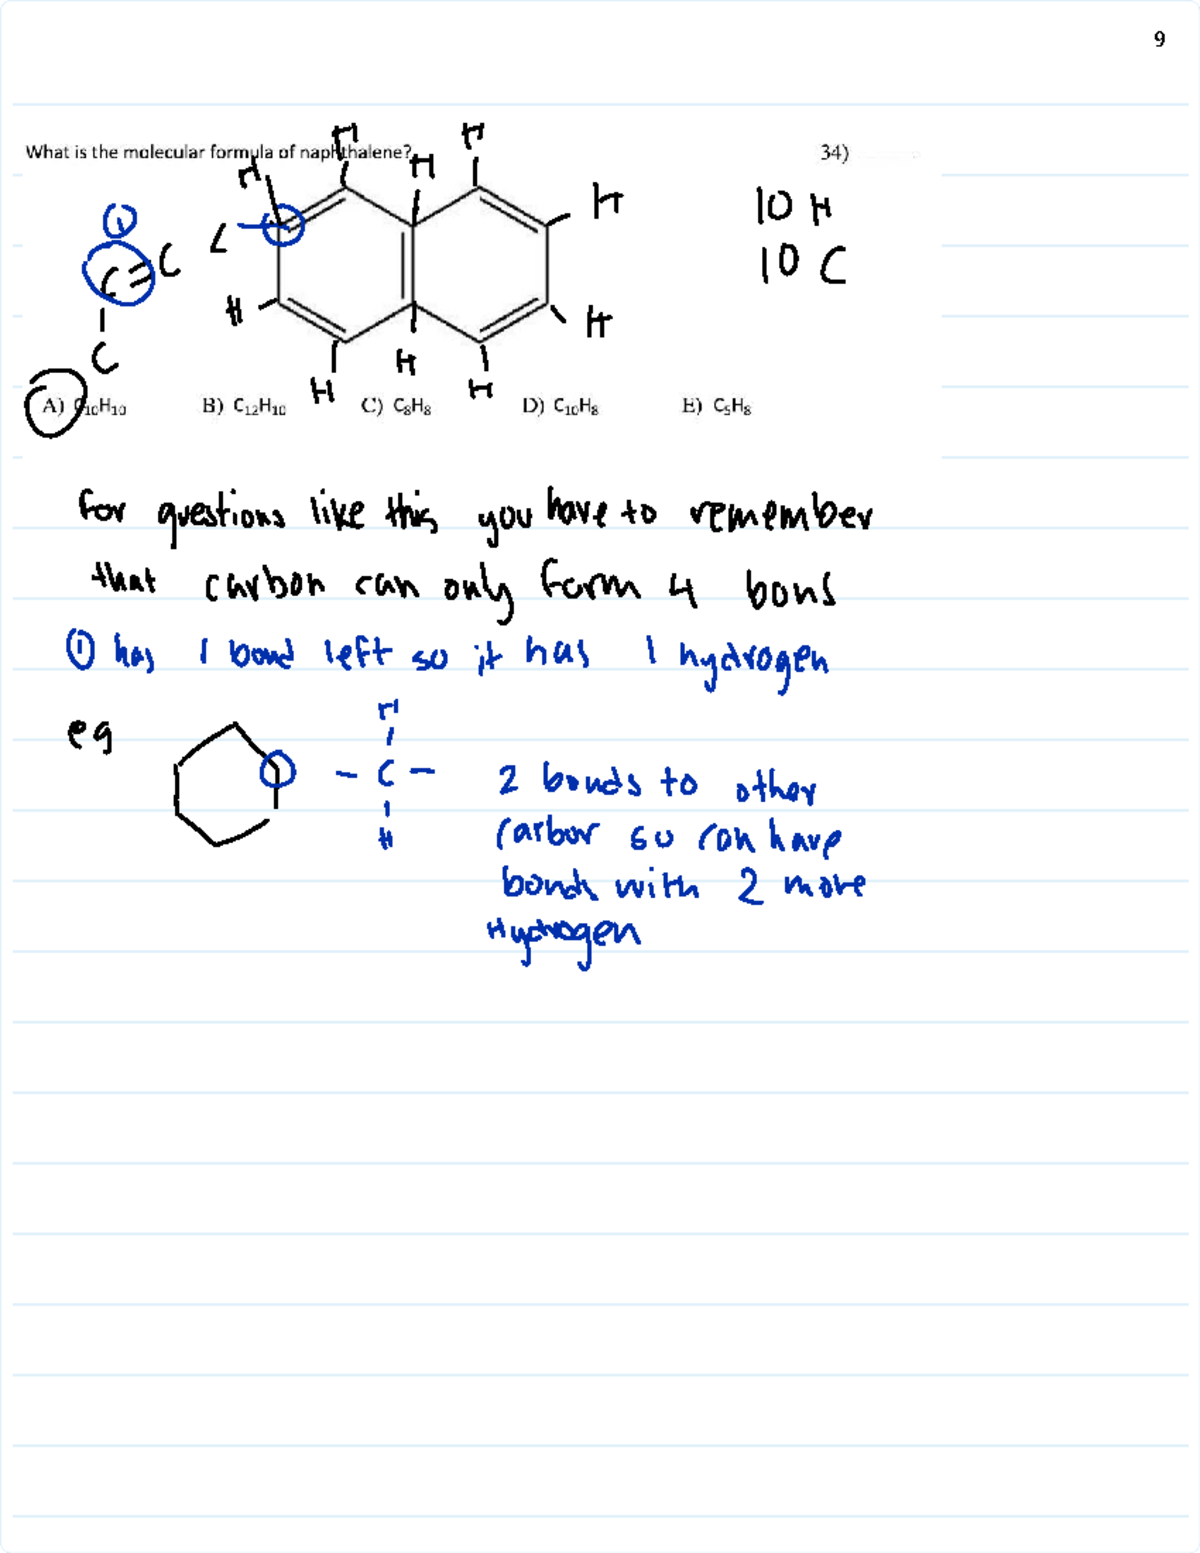 9
What is the molecular formula of naphthalene?
34)
H H H H
10 H
H
① C
C=C
10 C
C
H H
H H H
A) C10H10 B) C12H10 C) C8H8 D) C10H8 E) C5H8
for questions like this you have to remember
that carbon can only form 4 bons
① has 1 bond left so it has 1 hydrogen
eg
H
- C - 2 bonds to other
H carbor so can have
bonds with 2 more
Hydrogen